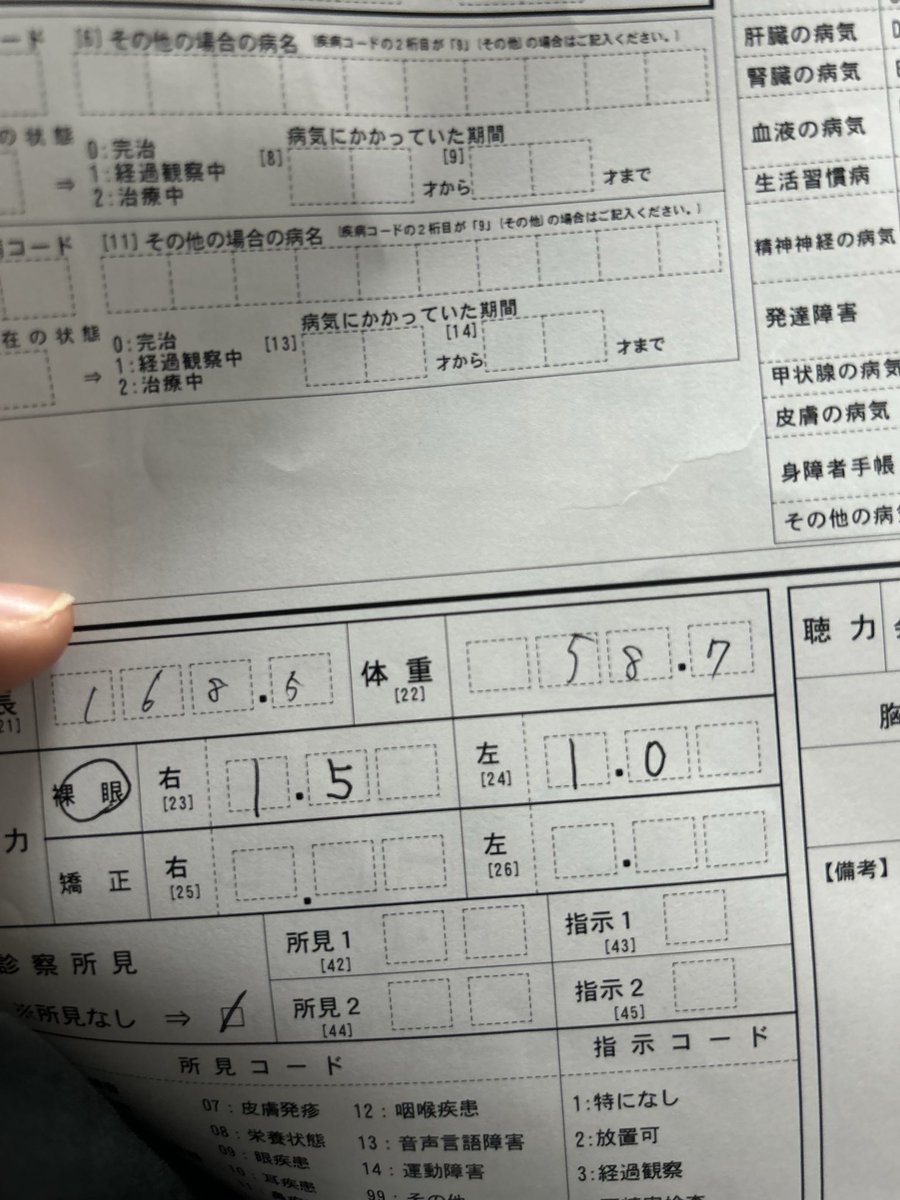 ード [6] その他の場合の病名 (疾病コードの2桁目が「9」(その他)の場合はご記入ください。)
の状態 0:完治
1:経過観察中
2:治療中
⇒
病気にかかっていた期間
[8] 才から [9] 才まで
コード [11] その他の場合の病名 (疾病コードの2桁目が「9」(その他)の場合はご記入ください。)
在の状態 0:完治
1:経過観察中
2:治療中
⇒
病気にかかっていた期間
[13] 才から [14] 才まで
肝臓の病気
腎臓の病気
血液の病気
生活習慣病
精神神経の病気
発達障害
甲状腺の病気
皮膚の病気
身障者手帳
その他の病気
長 [21] 168. 体重 [22] 58.7
聴力
裸眼 右 [23] 1.5 左 [24] 1.0
力
矯正 右 [25] . 左 [26] .
【備考】
診察所見
※所見なし ⇒
所見1 [42] 指示1 [43]
所見2 [44] 指示2 [45]
所見コード 指示コード
07:皮膚発疹 12:咽喉疾患 1:特になし
08:栄養状態 13:音声言語障害 2:放置可
09:眼疾患 14:運動障害 3:経過観察
10:耳疾患 99:その他